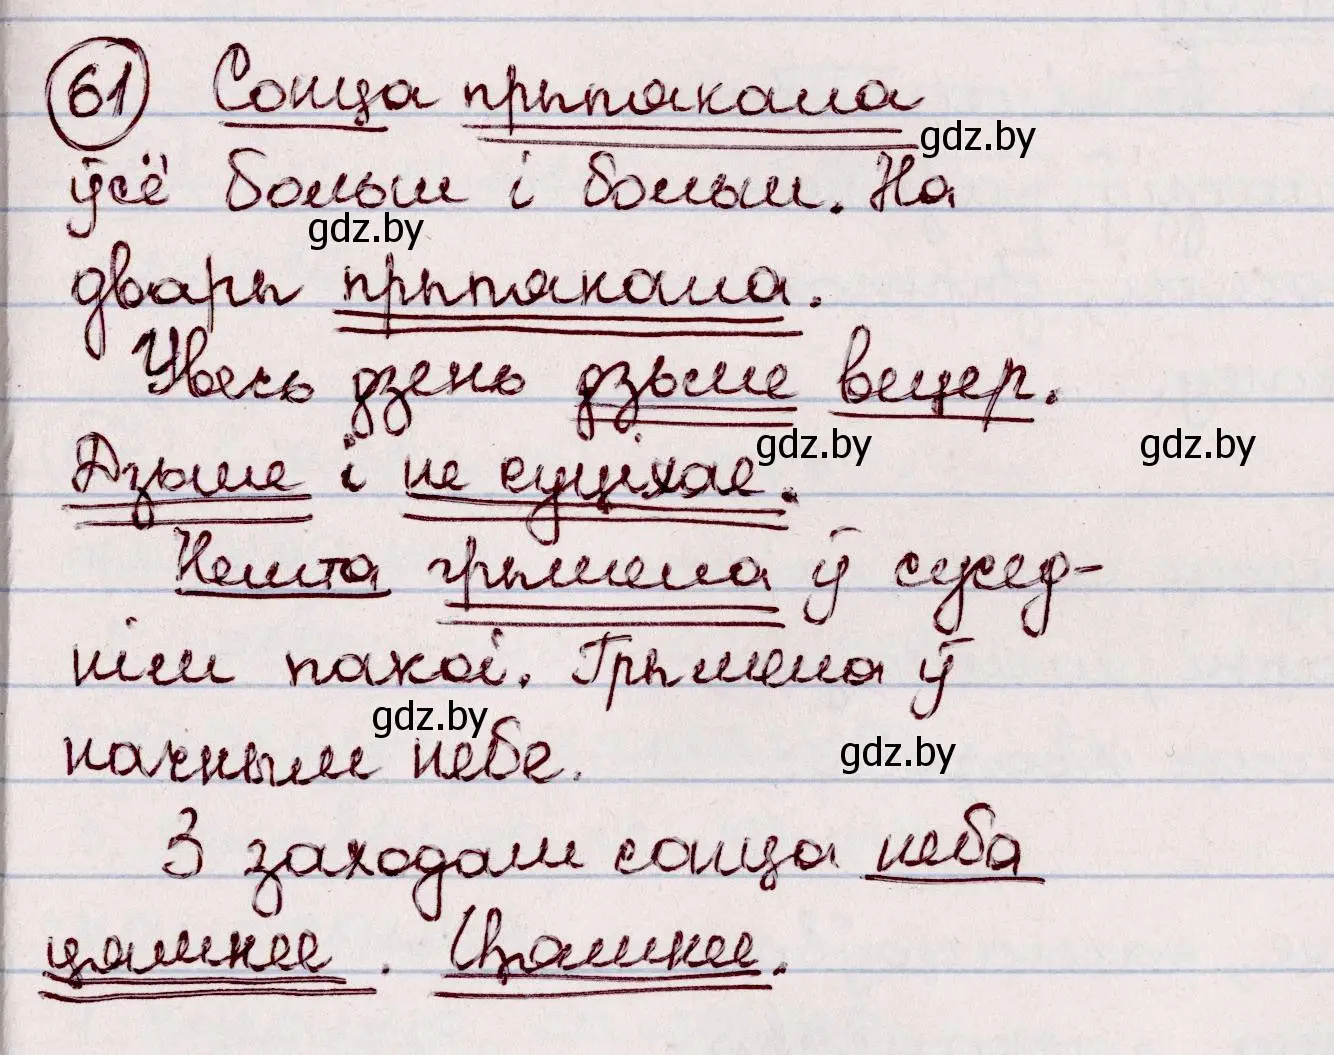 61 Сонца прыпякала
gdz.by
ўсё больш і больш. На
gdz.by
двары прыпякала.
Увесь дзень дзьме вецер.
gdz.by gdz.by
Дзьме і не сціхае.
Нешта грымела ў сусед-
нім пакоі. Грымела ў
gdz.by
начным небе.
gdz.by
З заходам сонца неба
цямнее. Цямнее.